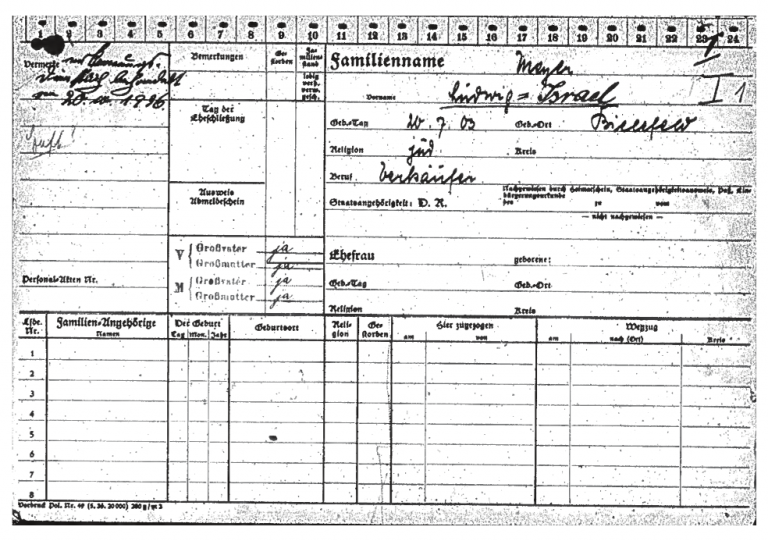 1 2 3 4 5 6 7 8 9 10 11 12 13 14 15 16 17 18 19 20 21 22 23 24
Vermerke
20. 1896
Bemerkungen
Ge-
storben
Fa-
milien-
stand
ledig
verh.
verw.
gesch.
Tag der
Eheschließung
Ausweis
Abmeldeschein
V { Großvater ja
Großmutter ja
M { Großvater ja
Großmutter ja
Personal-Akten Nr.
Familienname Meyer
Vorname Ludwig = Israel I 1
Geb.-Tag 20 7. 03 Geb.-Ort Bielefeld
Religion jüd Kreis
Beruf Verkäufer
Staatsangehörigkeit: D. R.
Nachgewiesen durch Heimatschein, Staatsangehörigkeitsausweis, Paß, Ein-
bürgerungsurkunde
des zu vom
— nicht nachgewiesen —
Ehefrau geborene:
Geb.-Tag Geb.-Ort
Religion Kreis
Lfde.
Nr.
Familien-Angehörige
Namen
Der Geburt
Tag Mon. Jahr
Geburtsort
Reli-
gion
Ge-
storben
Hier zugezogen
am von
Wegzug
am nach (Ort) Kreis
1
2
3
4
5
6
7
8
Vordruck Pol. Nr. 49 (5. 36. 20 000) 260 g/m 2